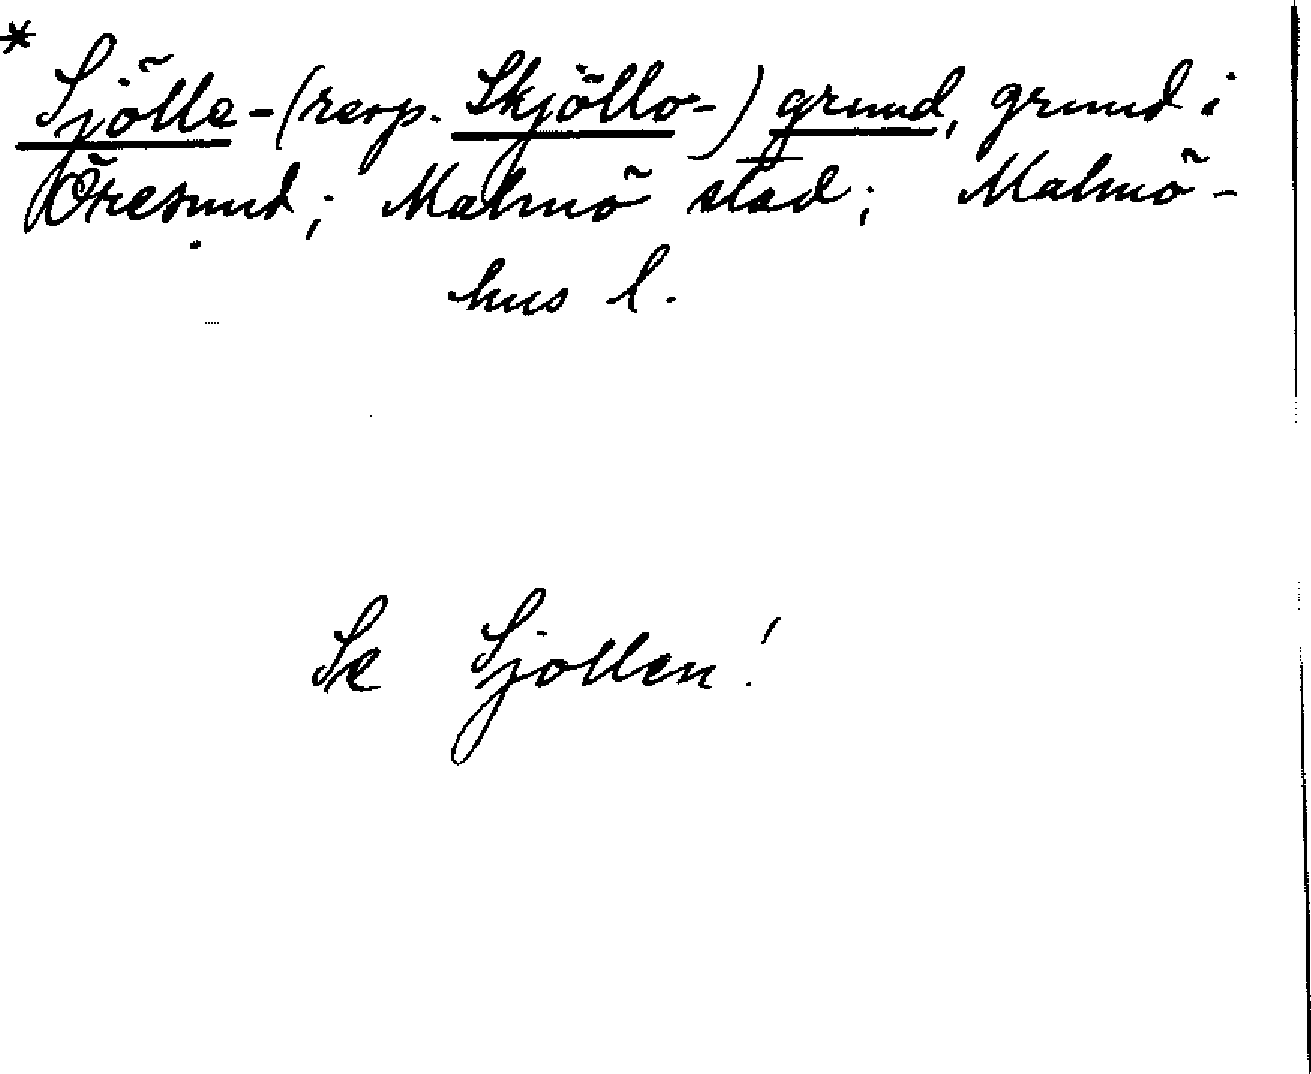 * Sjölle-(resp. Skjöllo-) grund, grund i
Öresund; Malmö stad; Malmö-
hus l.
Se Sjollen!